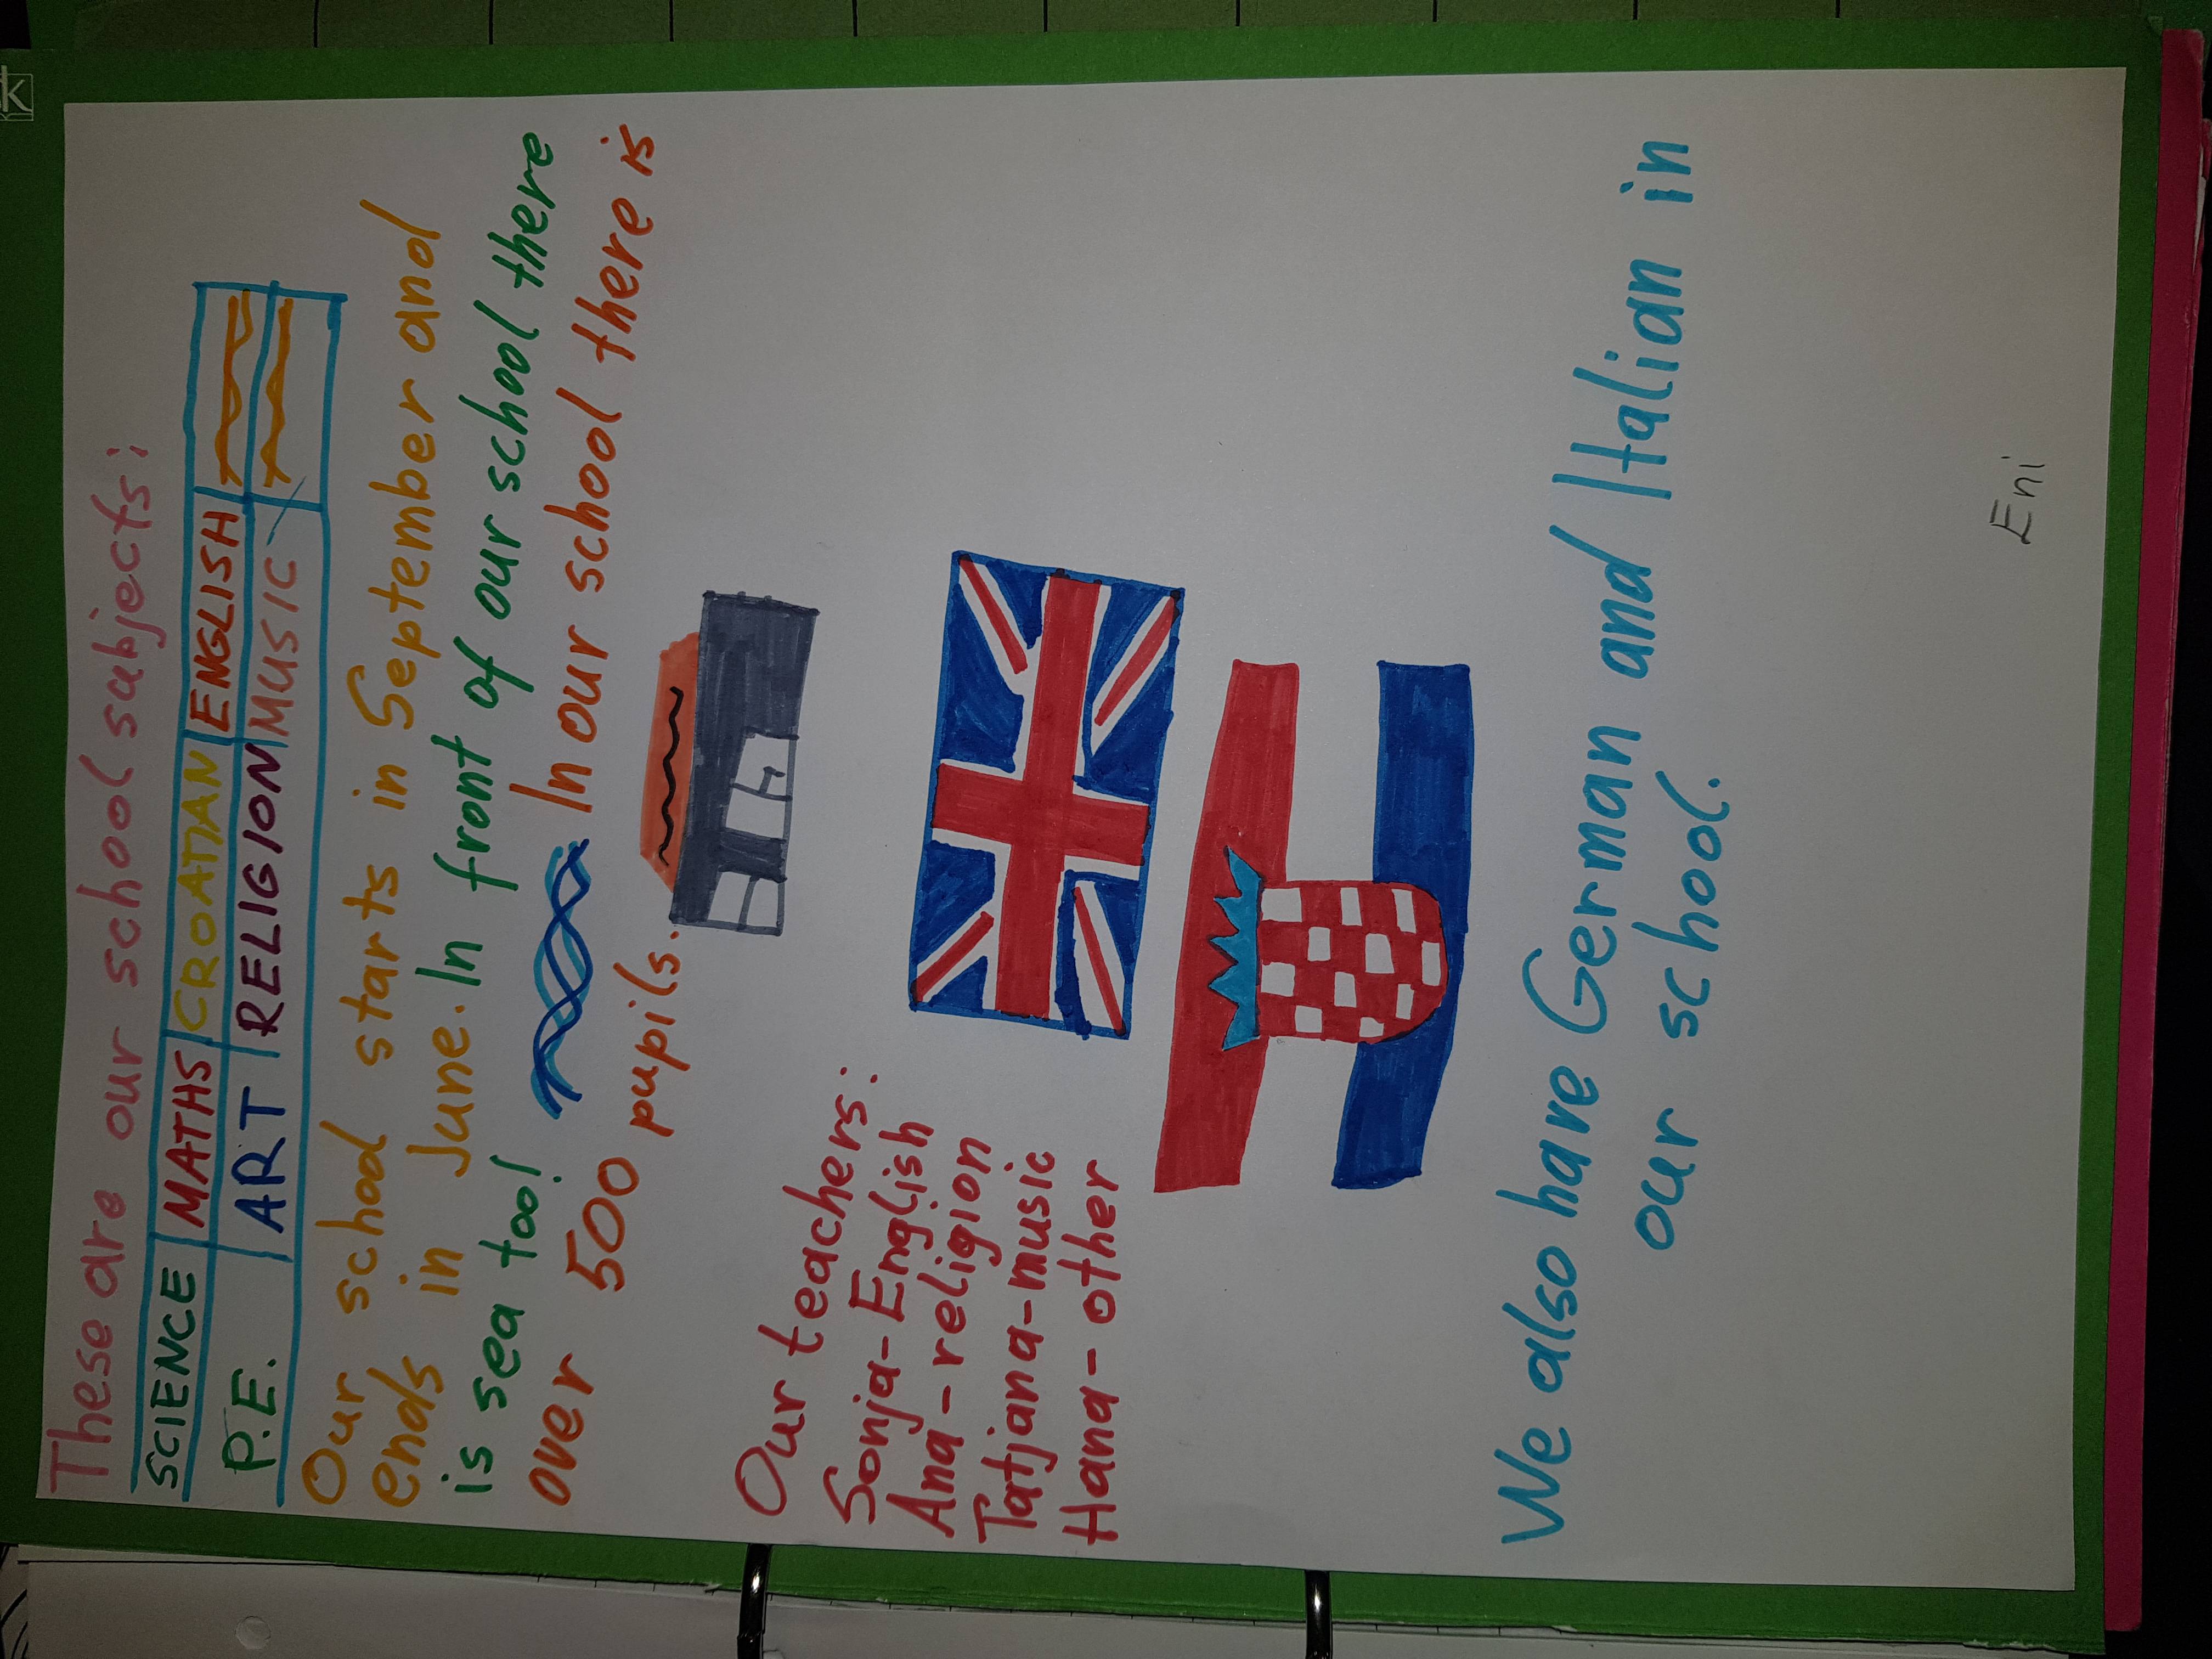 These are our school subjects:
SCIENCE MATHS CROATIAN ENGLISH
P.E. ART RELIGION MUSIC
Our school starts in September and
ends in June. In front of our school there
is sea too! In our school there is
over 500 pupils.
Our teachers:
Sonja-English
Ana-religion
Tatjana-music
Hana-other
We also have German and Italian in
our school.
Eni
k